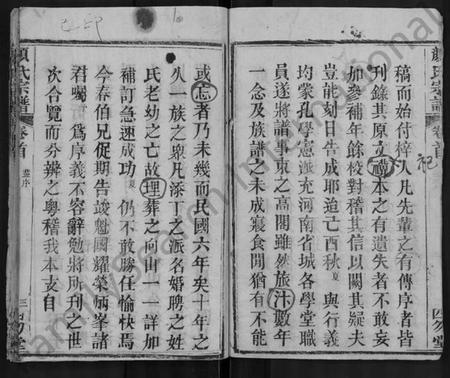 稿而始付梓人凡先輩之有傳序者皆
刊錄其原文譜本之有遺失者不敢妄
加參補年餘校對稽其信以闕其疑夫
豈能刻日告成耶迨己酉秋夏與行義
均蒙孔學憲派充河南省城各學堂職
員遂將譜事束之高閣雖然旅汴數年
一念及族譜之未成寢食間猶有不能
或忘者乃未幾而民國六年矣十年之
久一族之眾凡添丁之派名婚聘之姓
氏老幼之亡故埋葬之向山一一詳加
補訂急速成功夏仍不敢勝任愉快焉
今春伯兄促期告竣魁國耀榮炳峯諸
君囑夏為序義不容辭勉將所刊之世
次合覽而分辨之粵稽我本支自
顏氏宗譜
卷首
序
三
四勿堂
顏氏宗譜
卷首
四勿堂